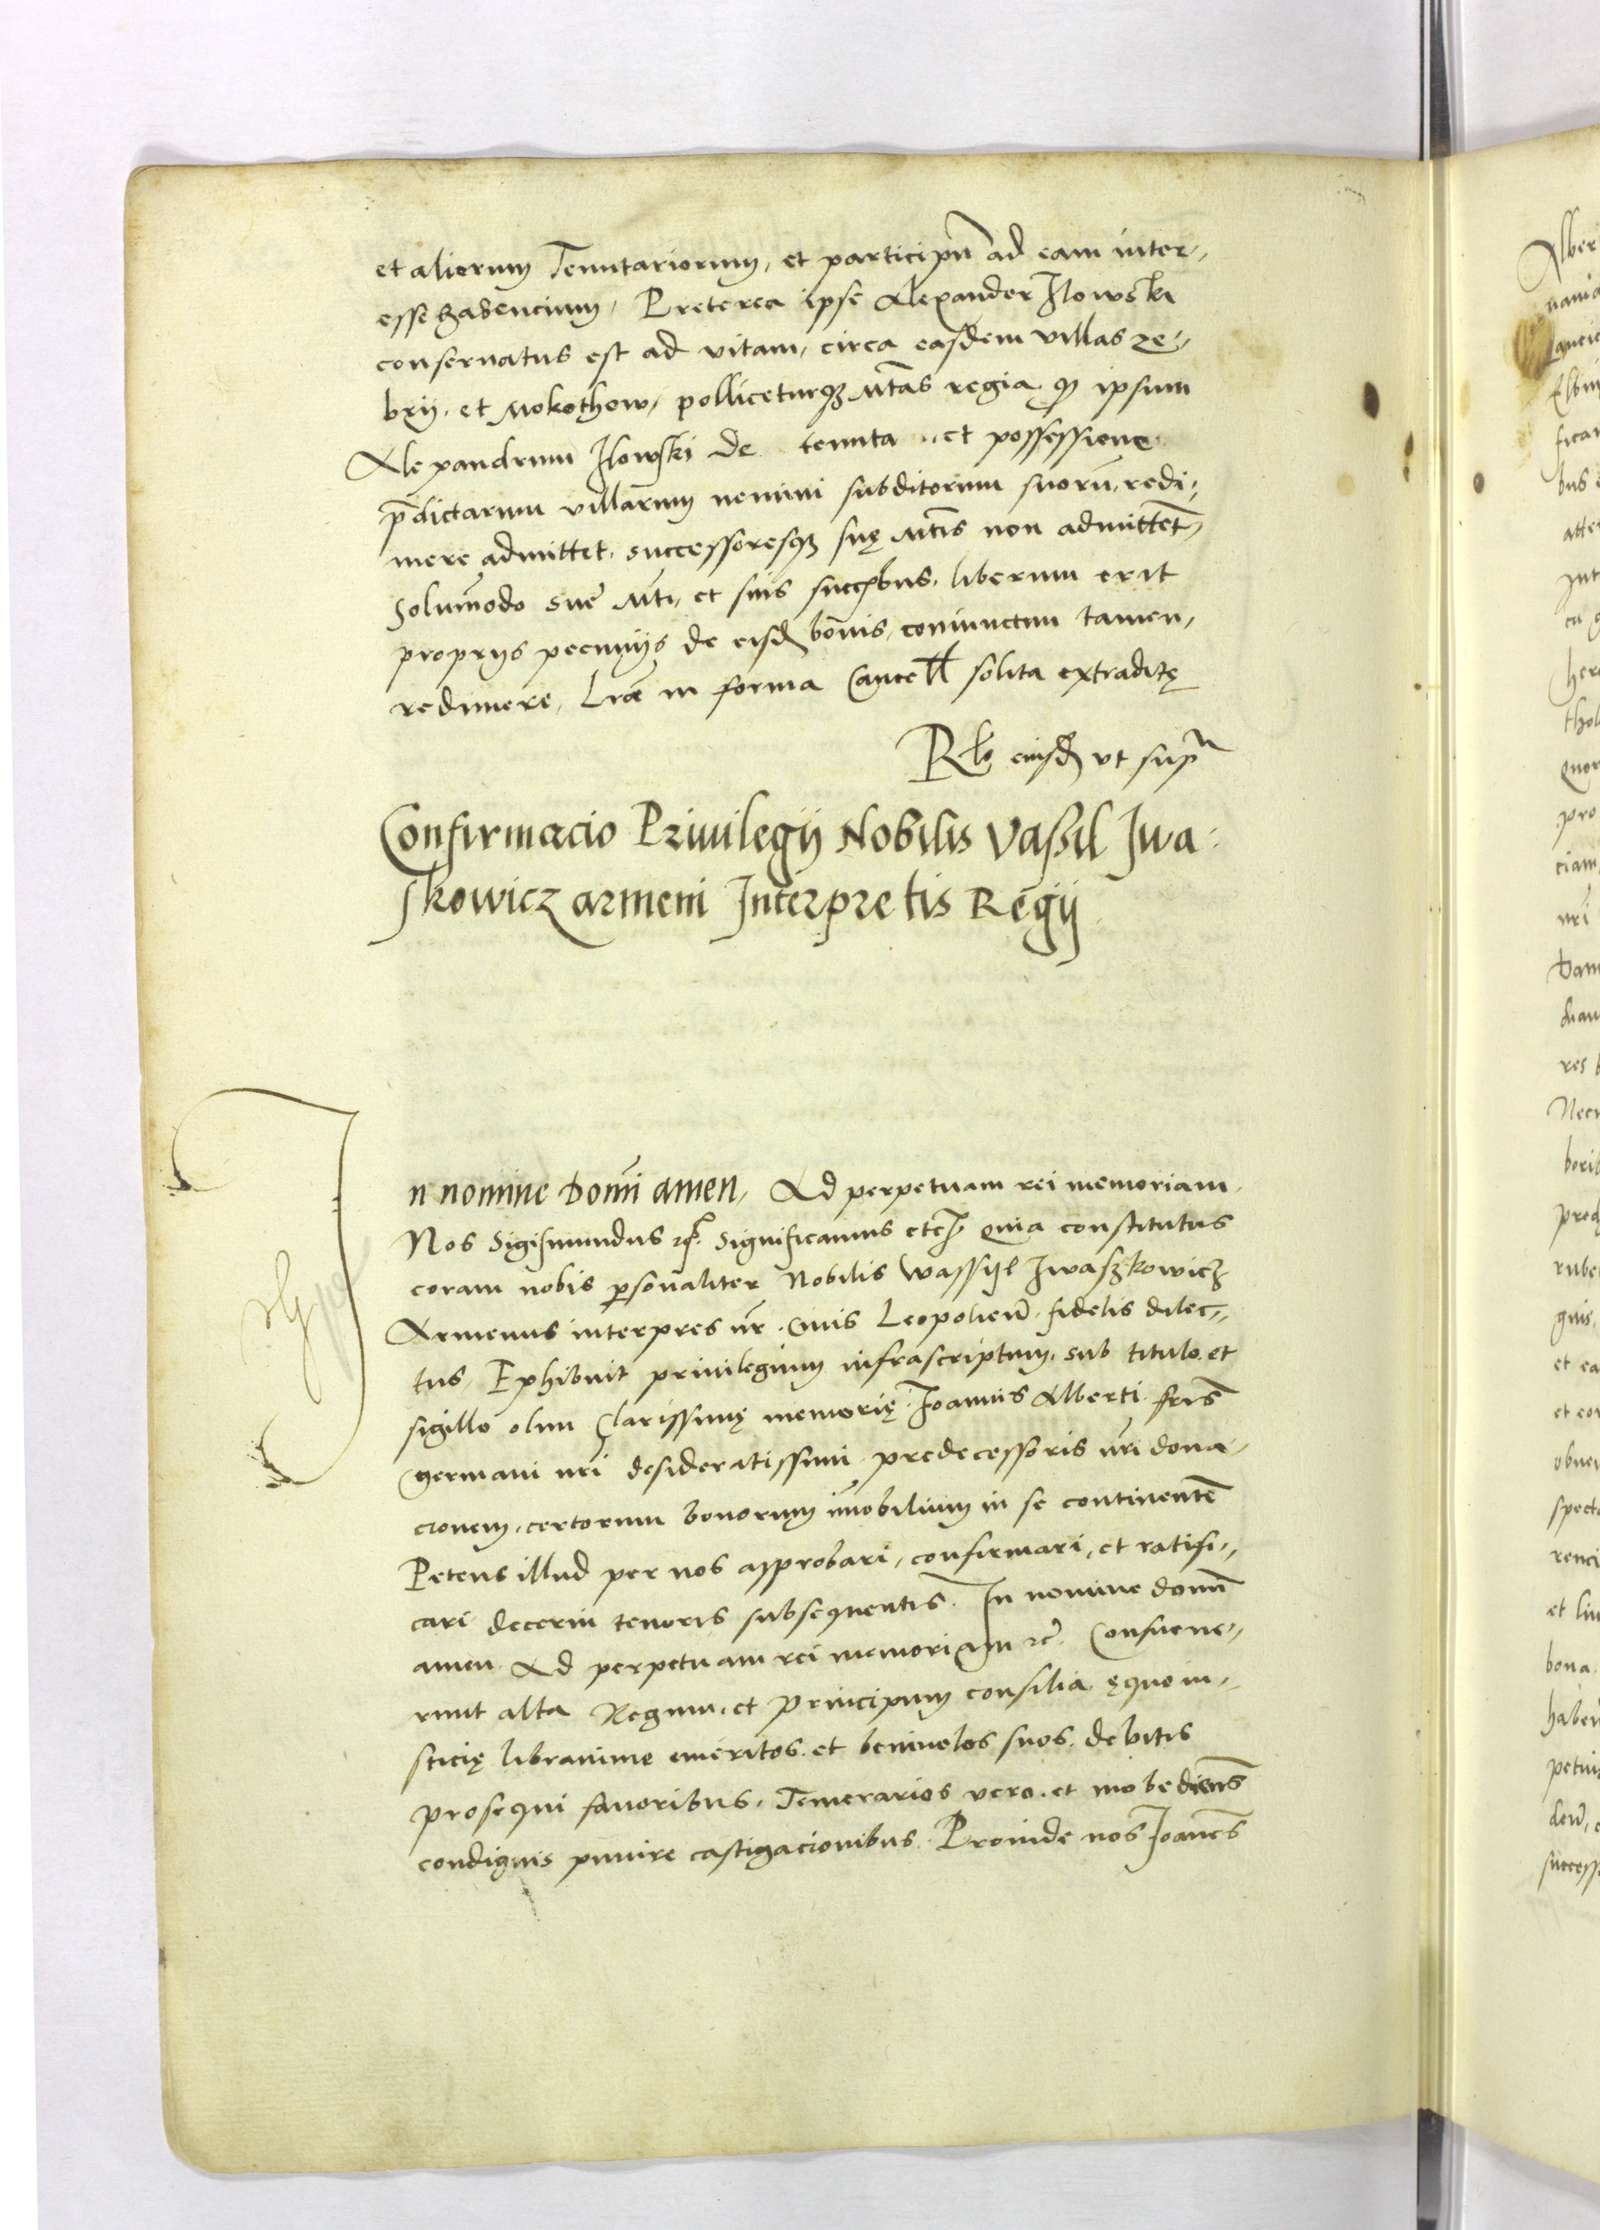 et aliorum Tenutariorum, et participu͂ ad eam inter,
esse habencium, Preterea ipse Alexander Ilowski
conseruatus est ad vitam, circa easdem villas ze,
brij, et Mokothow, polliceturqȝ Mtas regia ꝙ ipsum
Alexandrum Ilowski de tenuta et possessione
p̄dictarum villarum nemini subditorum suoru͂ redi,
mere admittet, successoresqȝ suę Mtis non admittent
Solum̄odo sue Mti, et suis succ̄bus, liberum erit
proprijs pecunijs de eisd bonis, coniunctim tamen,
redimere, Lrae in forma Cancell solita extraditę
Rlo eiusd vt supra
Confirmacio Priuilegij Nobilis Vasil Iwa
skowicz armeni Interpretis Regij
In nomine Domi͂ amen, Ad perpetuam rei memoriam
Nos Sigismundus ꝛc. Significamus etc. Quia constitutus
coram nobis p̄sonaliter Nobilis Wassijl Iwaszkowicz
Armenus interpres nr̄ Ciuis Leopolien̄ fidelis dilec,
tus, Exhibuit priuilegium infrascriptum, sub titulo et
sigillo olim Clarissimę memorię Ioannis Alberti fris̄
germani nr̄i desideratissimi predecessoris nr̄i dona,
cionem, certorum bonorum im̄obilium in se continente͂
Petens illud per nos approbari, confirmari, et ratifi,
cari decerni tenoris subsequentis. In nomine domi͂
amen Ad perpetuam rei memoriam ꝛc̄ Consueue,
runt alta Regum, et Principum consilia ęquo iu,
sticię libramine emeritos et beniuolos suos debitis
prosequi fauoribus, Temerarios vero et inobedien͂s
condignis punire castigacionibus Proinde nos Ioann͂s